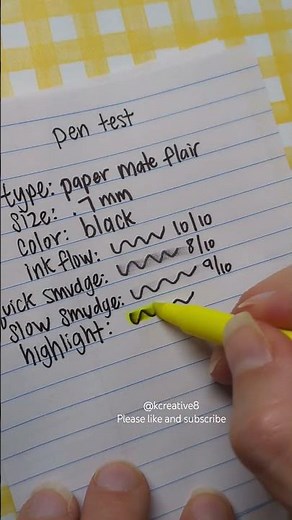 pen test
type: paper mate flair
size: .7mm
color: black
ink flow: 10/10
quick smudge: 8/10
slow smudge: 9/10
highlight:
@kcreative8
Please like and subscribe